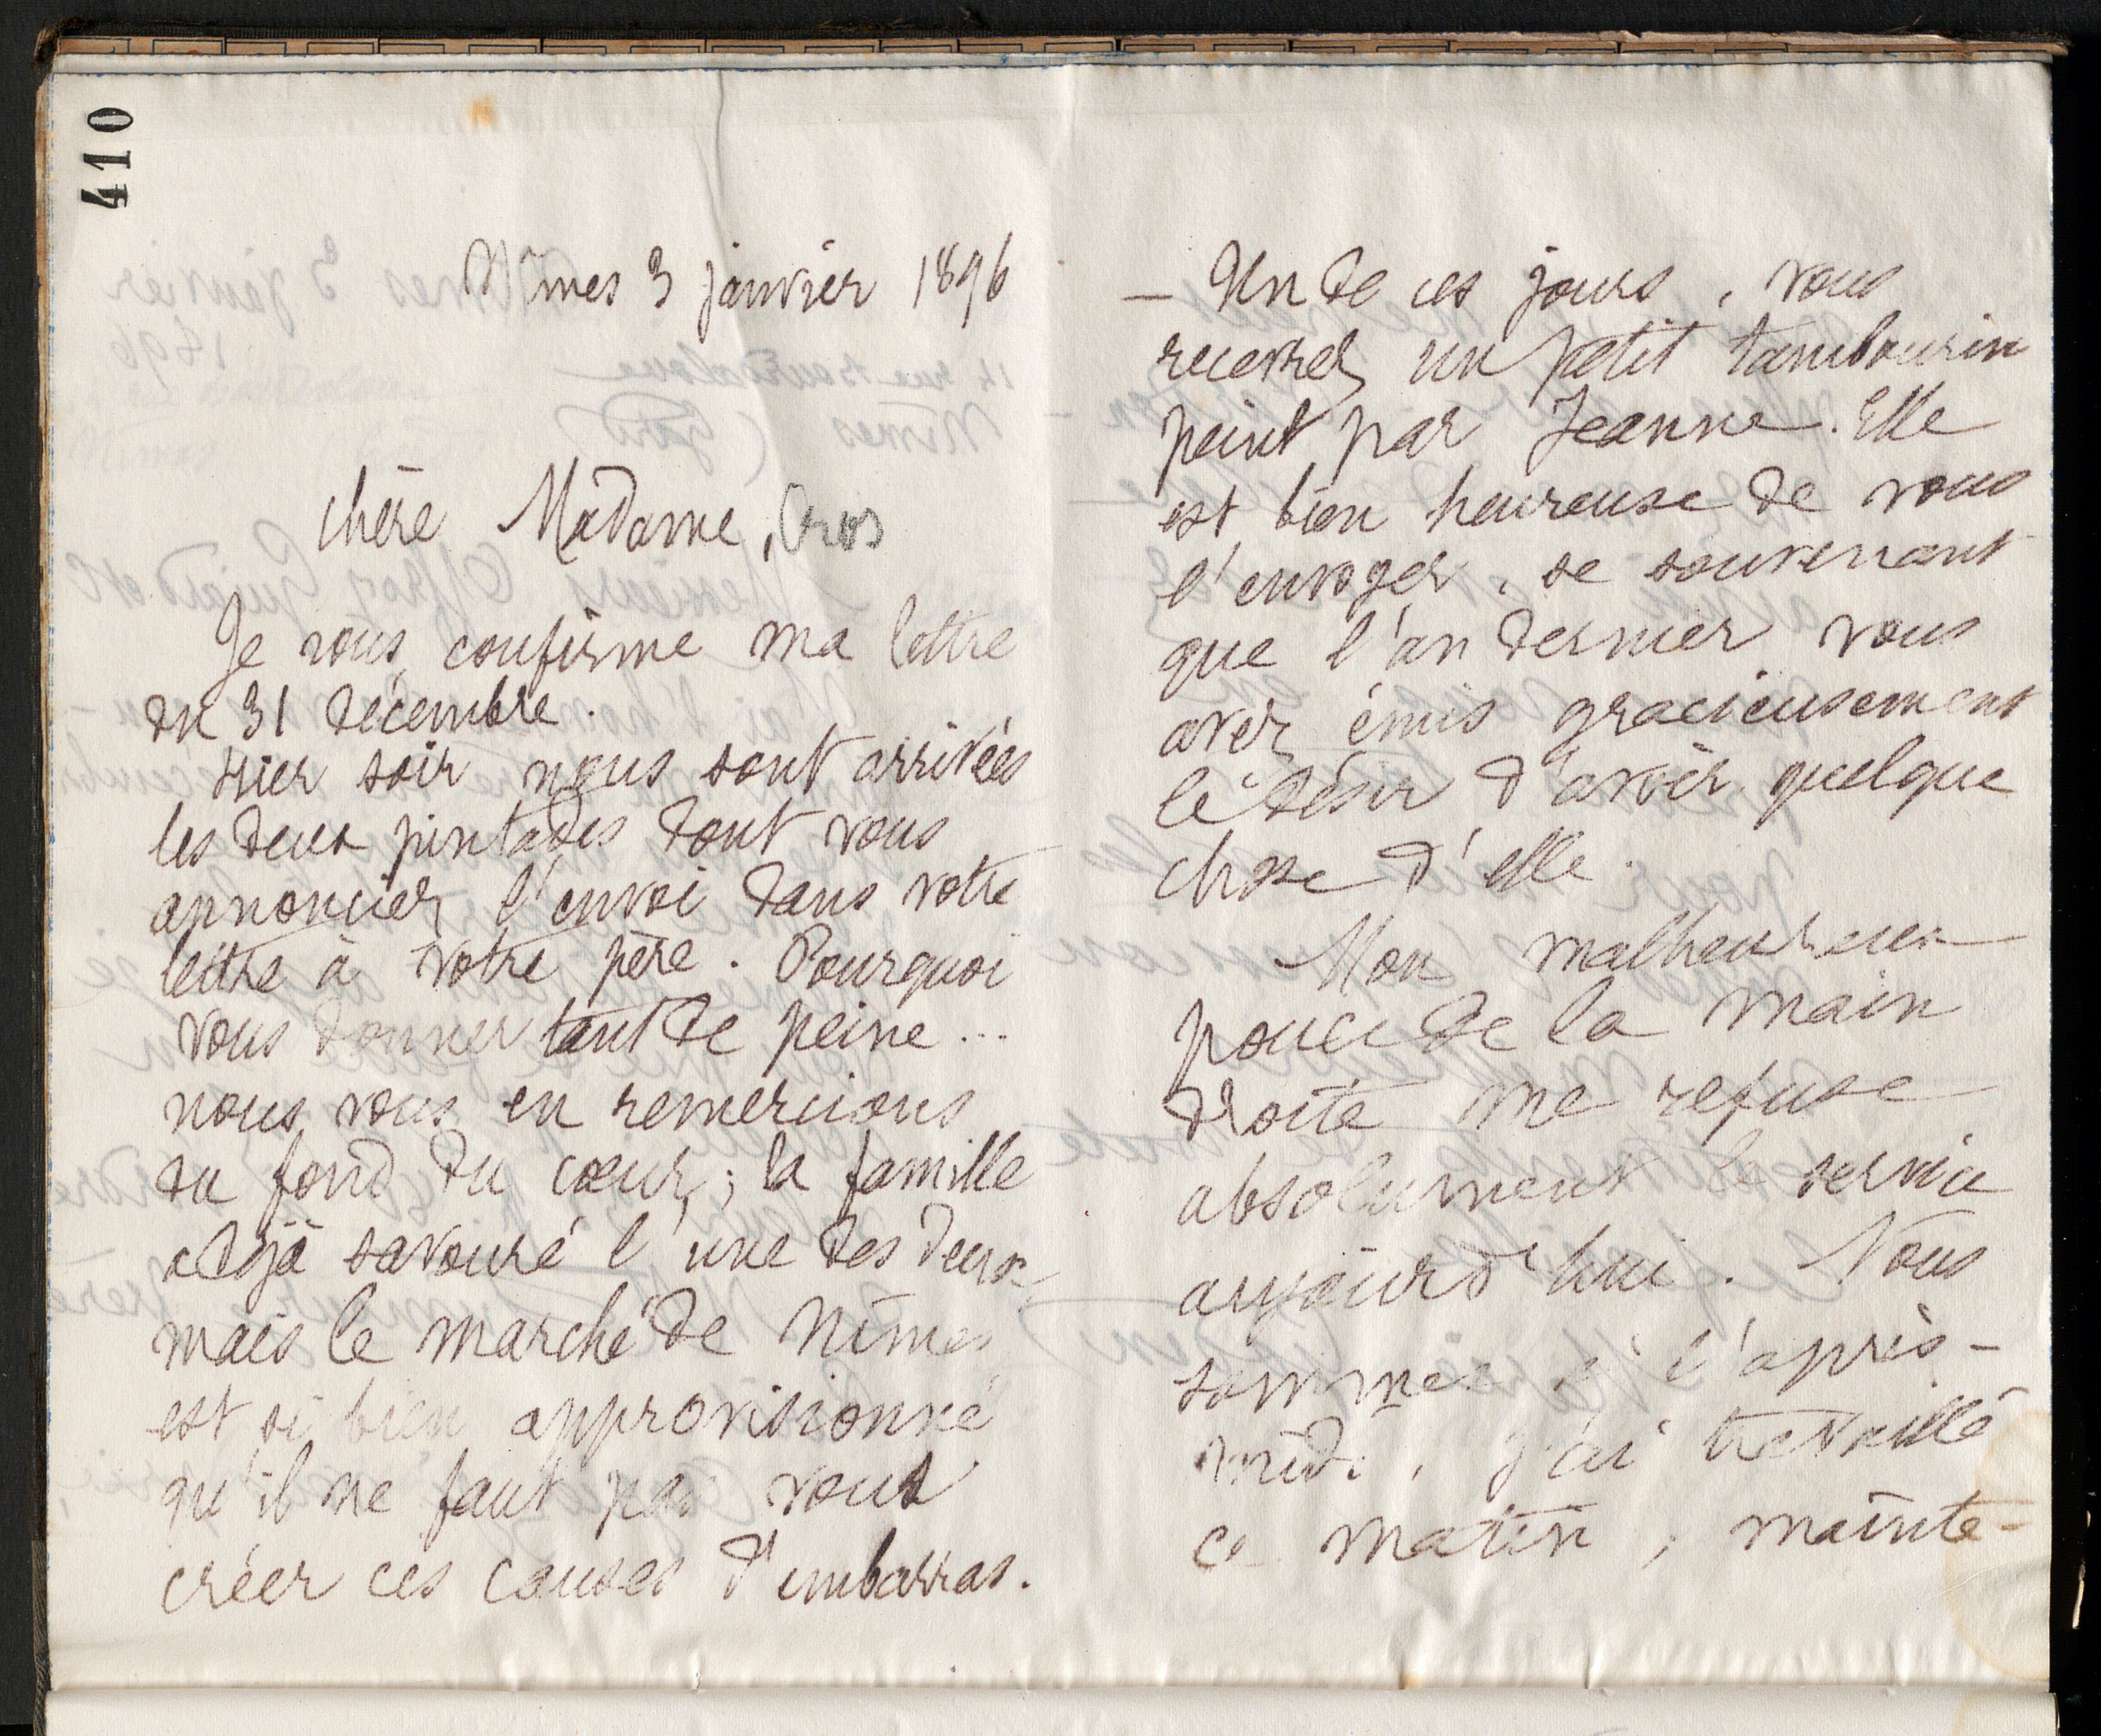 410
Nîmes 3 janvier 1896
Chère Madame, Cros
Je vous confirme ma lettre
du 31 décembre.
Hier soir nous sont arrivées
les deux pintades dont vous
annonciez l'envoi dans votre
lettre à votre père. Pourquoi
vous donner tant de peine...
nous vous en remercions
du fond du cœur ; la famille
a déjà savouré l'une des deux,
mais le marché de Nîmes
est si bien approvisionné
qu'il ne faut pas vous
créer ces causes d'embarras.
— Un de ces jours, vous
recevrez un petit tambourin
peint par Jeanne. Elle
est bien heureuse de vous
l'envoyer, se souvenant
que l'an dernier vous
avez émis gracieusement
le désir d'avoir quelque
chose d'elle.
Mon malheureux
pouce de la main
droite me refuse
absolument le service
aujourd'hui. Nous
sommes à l'après-
midi, j'ai travaillé
ce matin, mainte-